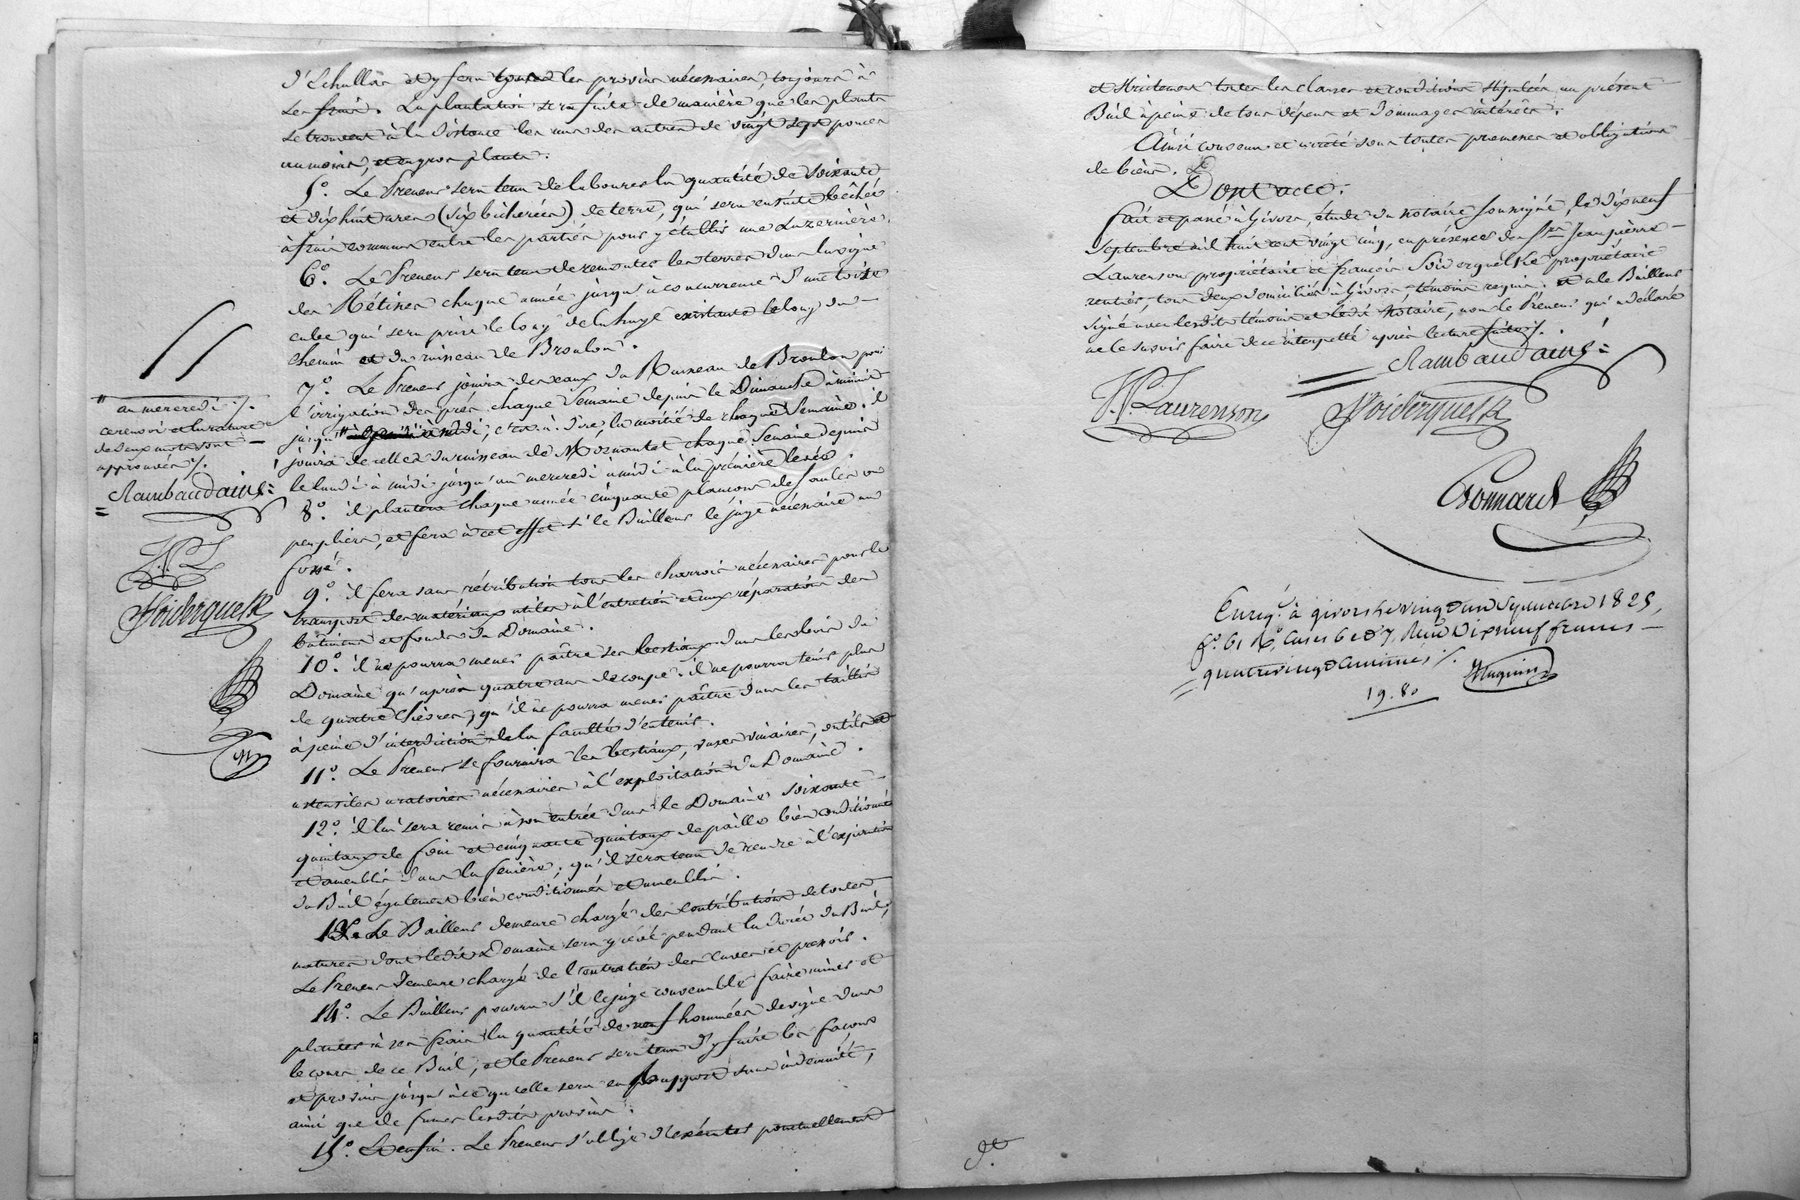 d'Echullas et y fera tous les provins nécessaires, toujours à
ses frais. La plantation sera faite de manière que les plants
se trouvent à la distance les uns des autres de vingt sept pouces
au moins, et en gros plants.
5°. Le Preneur sera tenu de labourer la quantité de soixante
et dix huit ares (six bicherées) de terre, qui sera ensuite béchée
à frais communs entre les parties pour y établir une Luzernière.
6°. Le Preneur sera tenu de remonter les terres dans la vigne
des Rétines chaque année jusqu'à concurrence d'une toise
cube qui sera prise le long de la haye existante le long du
chemin et du ruisseau de Broulon.
7°. Le Preneur jouira des eaux du Ruisseau de Broulon pour
l'irrigation des prés chaque Semaine depuis le Dimanche à minuit
jusqu' à midi, c'est-à-dire, la moitié de chaque Semaine. il
jouira de celles du ruisseau de Mornantet chaque Semaine depuis
le lundi à midi jusqu'au mercredi à midi à la première levée.
8°. il plantera chaque année cinquante plançons de saules ou
peupliers, et fera à cet effet si le Bailleur le juge nécessaire un
fossé.
9°. il fera sans rétribution tous les charrois nécessaires pour le
transport des matériaux utiles à l'entretien et aux réparations des
bâtimens et fonds du Domaine.
10°. il ne pourra mener paître ses bestiaux dans les bois du
Domaine qu'après quatre ans de coupe. il ne pourra tenir plus
de quatre Chèvres, qu'il ne pourra mener paître dans les taillis
à peine d'interdiction de la faculté d'en tenir.
11°. Le Preneur se fournira les bestiaux, vases vinaires, outils et
ustensiles aratoires nécessaires à l'exploitation du Domaine.
12°. il lui sera remis à son entrée dans le Domaine soixante
quintaux de foin et cinquante quintaux de paille bien conditionnés
et ameublis dans la fenière, qu'il sera tenu de rendre à l'expiration
du Bail également bien conditionnés et ameublis.
13°. Le Bailleur demeure chargé des contributions de toutes
natures dont ledit Domaine sera grévé pendant la durée du Bail,
Le Preneur demeure chargé de l'entretien des cuves et pressoir.
14°. Le Bailleur pourra s'il le juge convenable faire miner et
planter à ses frais la quantité de neuf hommées de vigne dans
le cours de ce Bail, et le Preneur sera tenu d'y faire les façons
et provins jusqu'à ce qu'elle sera en rapport sans indemnité,
ainsi que de fumer lesdits provins.
15°. Le Preneur s'oblige d'exécuter ponctuellement
" au mercredi ./.
ce renvoi et la rature
de deux mots sont
approuvés ./.
Rambaud ainé
J.P. L
Soiderquelk
et strictement toutes les clauses et conditions stipulées au présent
Bail à peine de tous dépens et dommages intérêts.
Ainsi convenu et arrêté sous toutes promesses et obligations
de biens.
Dont acte.
Fait et passé à Givors, étude du notaire soussigné, le dix neuf
Septembre mil huit cent vingt cinq, en présence des Srs Jean pierre
Laurenson propriétaire et françois Soiderquelke propriétaire
rentier, tous deux domiciliés à Givors témoins requis. et a le Bailleur
signé avec lesdits témoins et ledit Notaire, non le Preneur qui a déclaré
ne le savoir faire de ce interpellé après lecture faite ./.
Rambaud ainé
J.P. Laurenson
Soiderquelk
Bonnard
Enregé. à givors le vingt un septembre 1825,
f°. 61 R°, cases 6 et 7, Reçu Dix neuf francs
quatre vingt centimes ./.
19.80